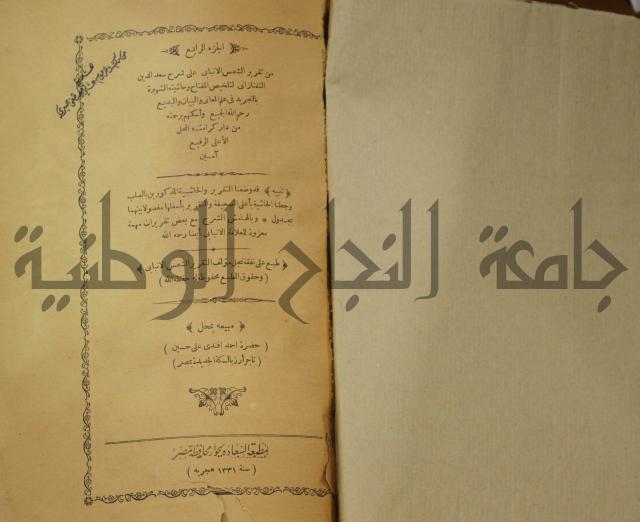 الجزء الرابع
من تقرير الشمس الانبابى على شرح سعد الدين
التفتازانى لتلخيص المفتاح وحاشيته الشهيرة
بالتجريد فى علم المعانى والبيان والبديع
رحم الله الجميع وأسكنهم برحمته
من دار كرامته المحل
الأعلى الرفيع
آمين
﴿ تنبيه ﴾ قد وضعنا التقرير والحاشية المذكورين بالصلب
وجعلنا الحاشية بأعلى الصحيفة والتقرير بأسفلها مفصولا بينهما
بجدول * وبالهامش الشرح مع بعض تقريرات مهمة
معزوة للعلامة الانبابى أيضا رحمه الله
﴿ طبع على نفقة نجل مؤلف التقرير الشمس الانبابى ﴾
( وحقوق الطبع محفوظة له حفظه الله )
جامعة النجاح الوطنية
﴿ مبيعه بمحل ﴾
( حضرة احمد افندى على حسين )
( تاجر أرز بالسكة الجديدة بمصر )
مطبعة السعادة بجوار محافظة مصر
( سنة ١٣٣١ هجريه )